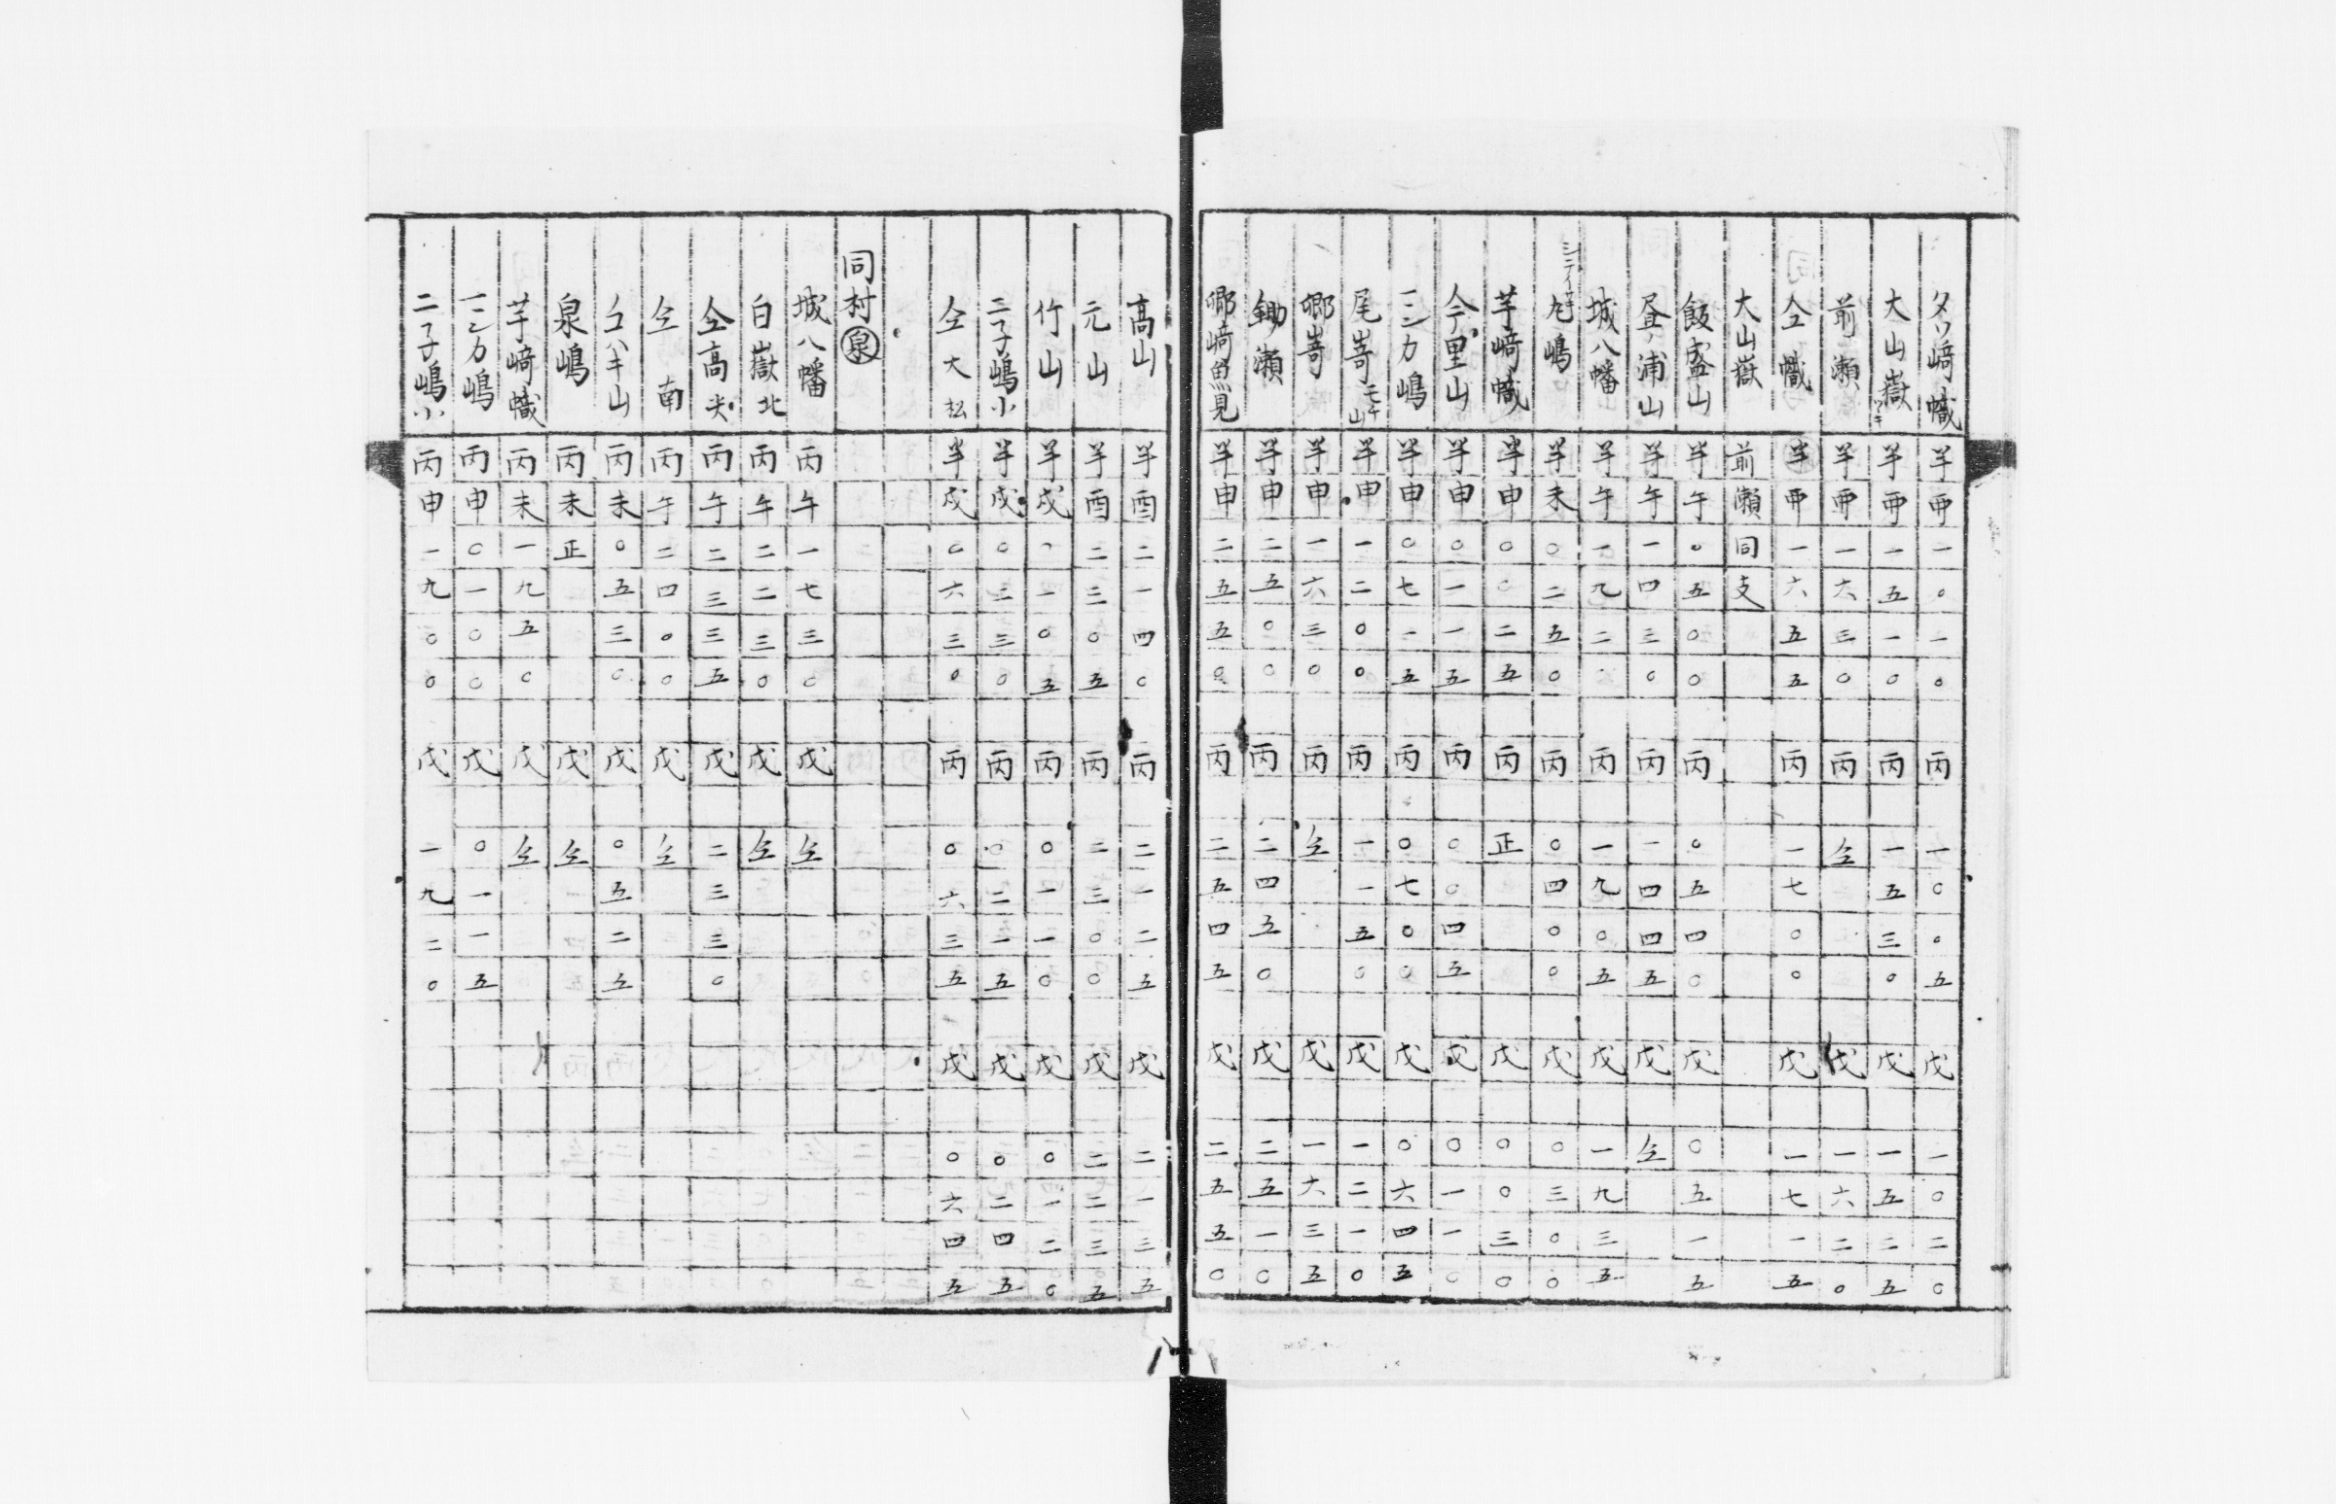 タソ﨑幟 半酉一〇一〇 丙一〇〇五 戊一〇二〇
大山嶽ワキ 半酉一五一〇 丙一五三〇 戊一五二五
前瀬 半酉一六三〇 丙仝 戊一六二〇
仝幟 半酉一六五五 丙一七〇〇 戊一七一五
大山嶽 前瀬同支
飯盛山 半午〇五〇〇 丙〇五四〇 戊〇五一五
昼ノ浦山 半午一四三〇 丙一四四五 戊仝
城八幡 半午一九二 丙一九〇五 戊一九三五
尨嶋 半未〇二五〇 丙〇四〇〇 戊〇三〇〇
芋﨑幟 半申〇〇二五 丙正 戊〇〇三〇
今里山 半申〇一一五 丙〇〇四五 戊〇一一〇
ニシカ嶋 半申〇七一五 丙〇七〇〇 戊〇六四五
尾嵜 半申一二〇〇 丙一一五〇 戊一二一〇
郷嵜 半申一六三〇 丙仝 戊一六三五
鋤瀬 半申二五〇〇 丙二四五〇 戊二五一〇
郷﨑魚見 半申二五五〇 丙二五四五 戊二五五〇
高山 半酉二一四〇 丙二一二五 戊二一三五
元山 半酉二三〇五 丙二三〇〇 戊二二三五
竹山 半戌一一〇五 丙〇一一〇 戊〇一二〇
二子嶋小 半戌〇三三〇 丙〇二一五 戊〇二四五
仝大松 半戌〇六三〇 丙〇六三五 戊〇六四五
同村泉
城八幡 丙午一七三〇 戊仝
白嶽北 丙午二二三〇 戊仝
仝高尖 丙午二三三五 戊二三三〇
仝南 丙午二四〇〇 戊仝
エハキ山 丙未〇五三〇 戊〇五二五
泉嶋 丙未正 戊仝
芋﨑幟 丙未一九五〇 戊仝
ニシカ嶋 丙申〇一〇〇 戊〇一一五
二子嶋小 丙申一九〇〇 戊一九二〇